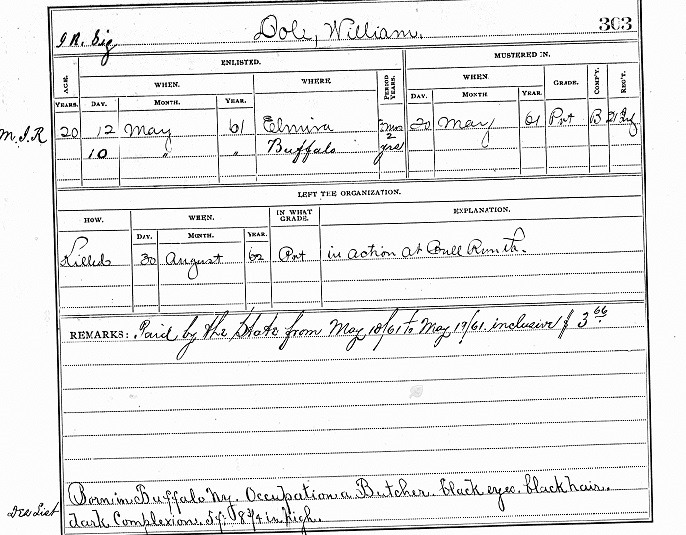 Dole, William. 303
ENLISTED. MUSTERED IN.
AGE. WHEN. WHERE PERIOD YEARS. WHEN. GRADE. COMP'Y. REG'T.
YEARS. DAY. MONTH. YEAR. DAY. MONTH YEAR.
M.I.R 20 12 May 61 Elmira 2 20 May 61 Pvt B 21
10 " " Buffalo yrs
LEFT THE ORGANIZATION.
HOW. WHEN. IN WHAT GRADE. EXPLANATION.
DAY. MONTH. YEAR.
Killed 30 August 62 Pvt in action at Bull Run
REMARKS: Paid by the State from May 10/61 to May 19/61 inclusive $ 3 66
Born in Buffalo Ny. Occupation a Butcher. black eyes. black hair.
Des List dark Complexion. 5 ft 8 3/4 in high.